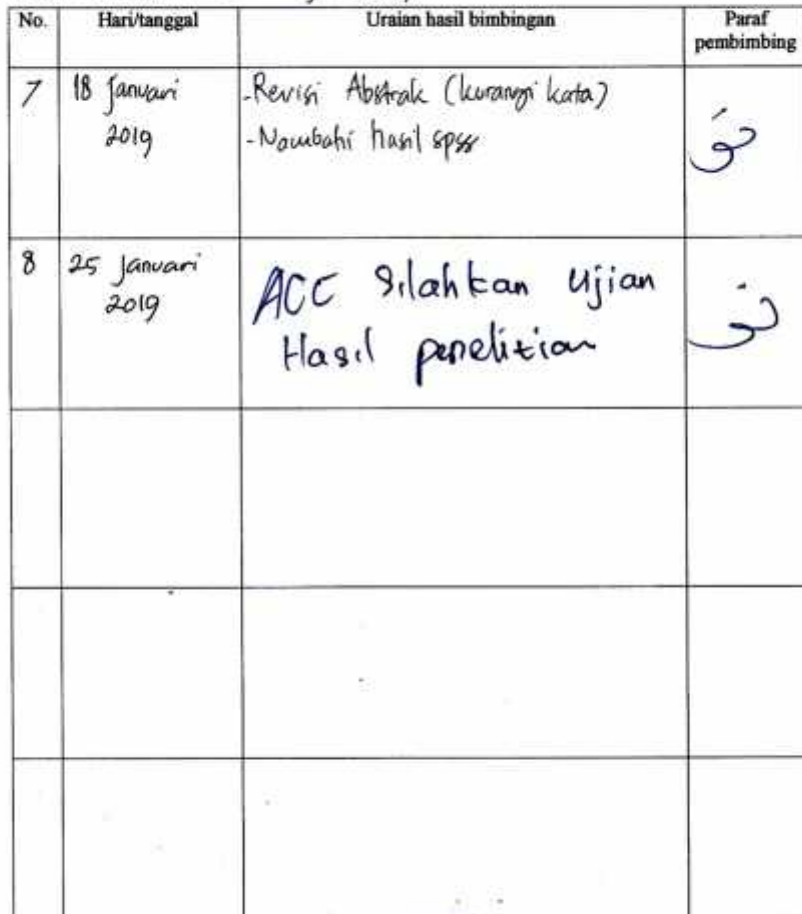 No. Hari/tanggal Uraian hasil bimbingan Paraf
pembimbing
7 18 Januari -Revisi Abstrak (kurangi kata)
2019 -Nambahi hasil spss
8 25 Januari ACC Silahkan Ujian
2019 Hasil penelitian